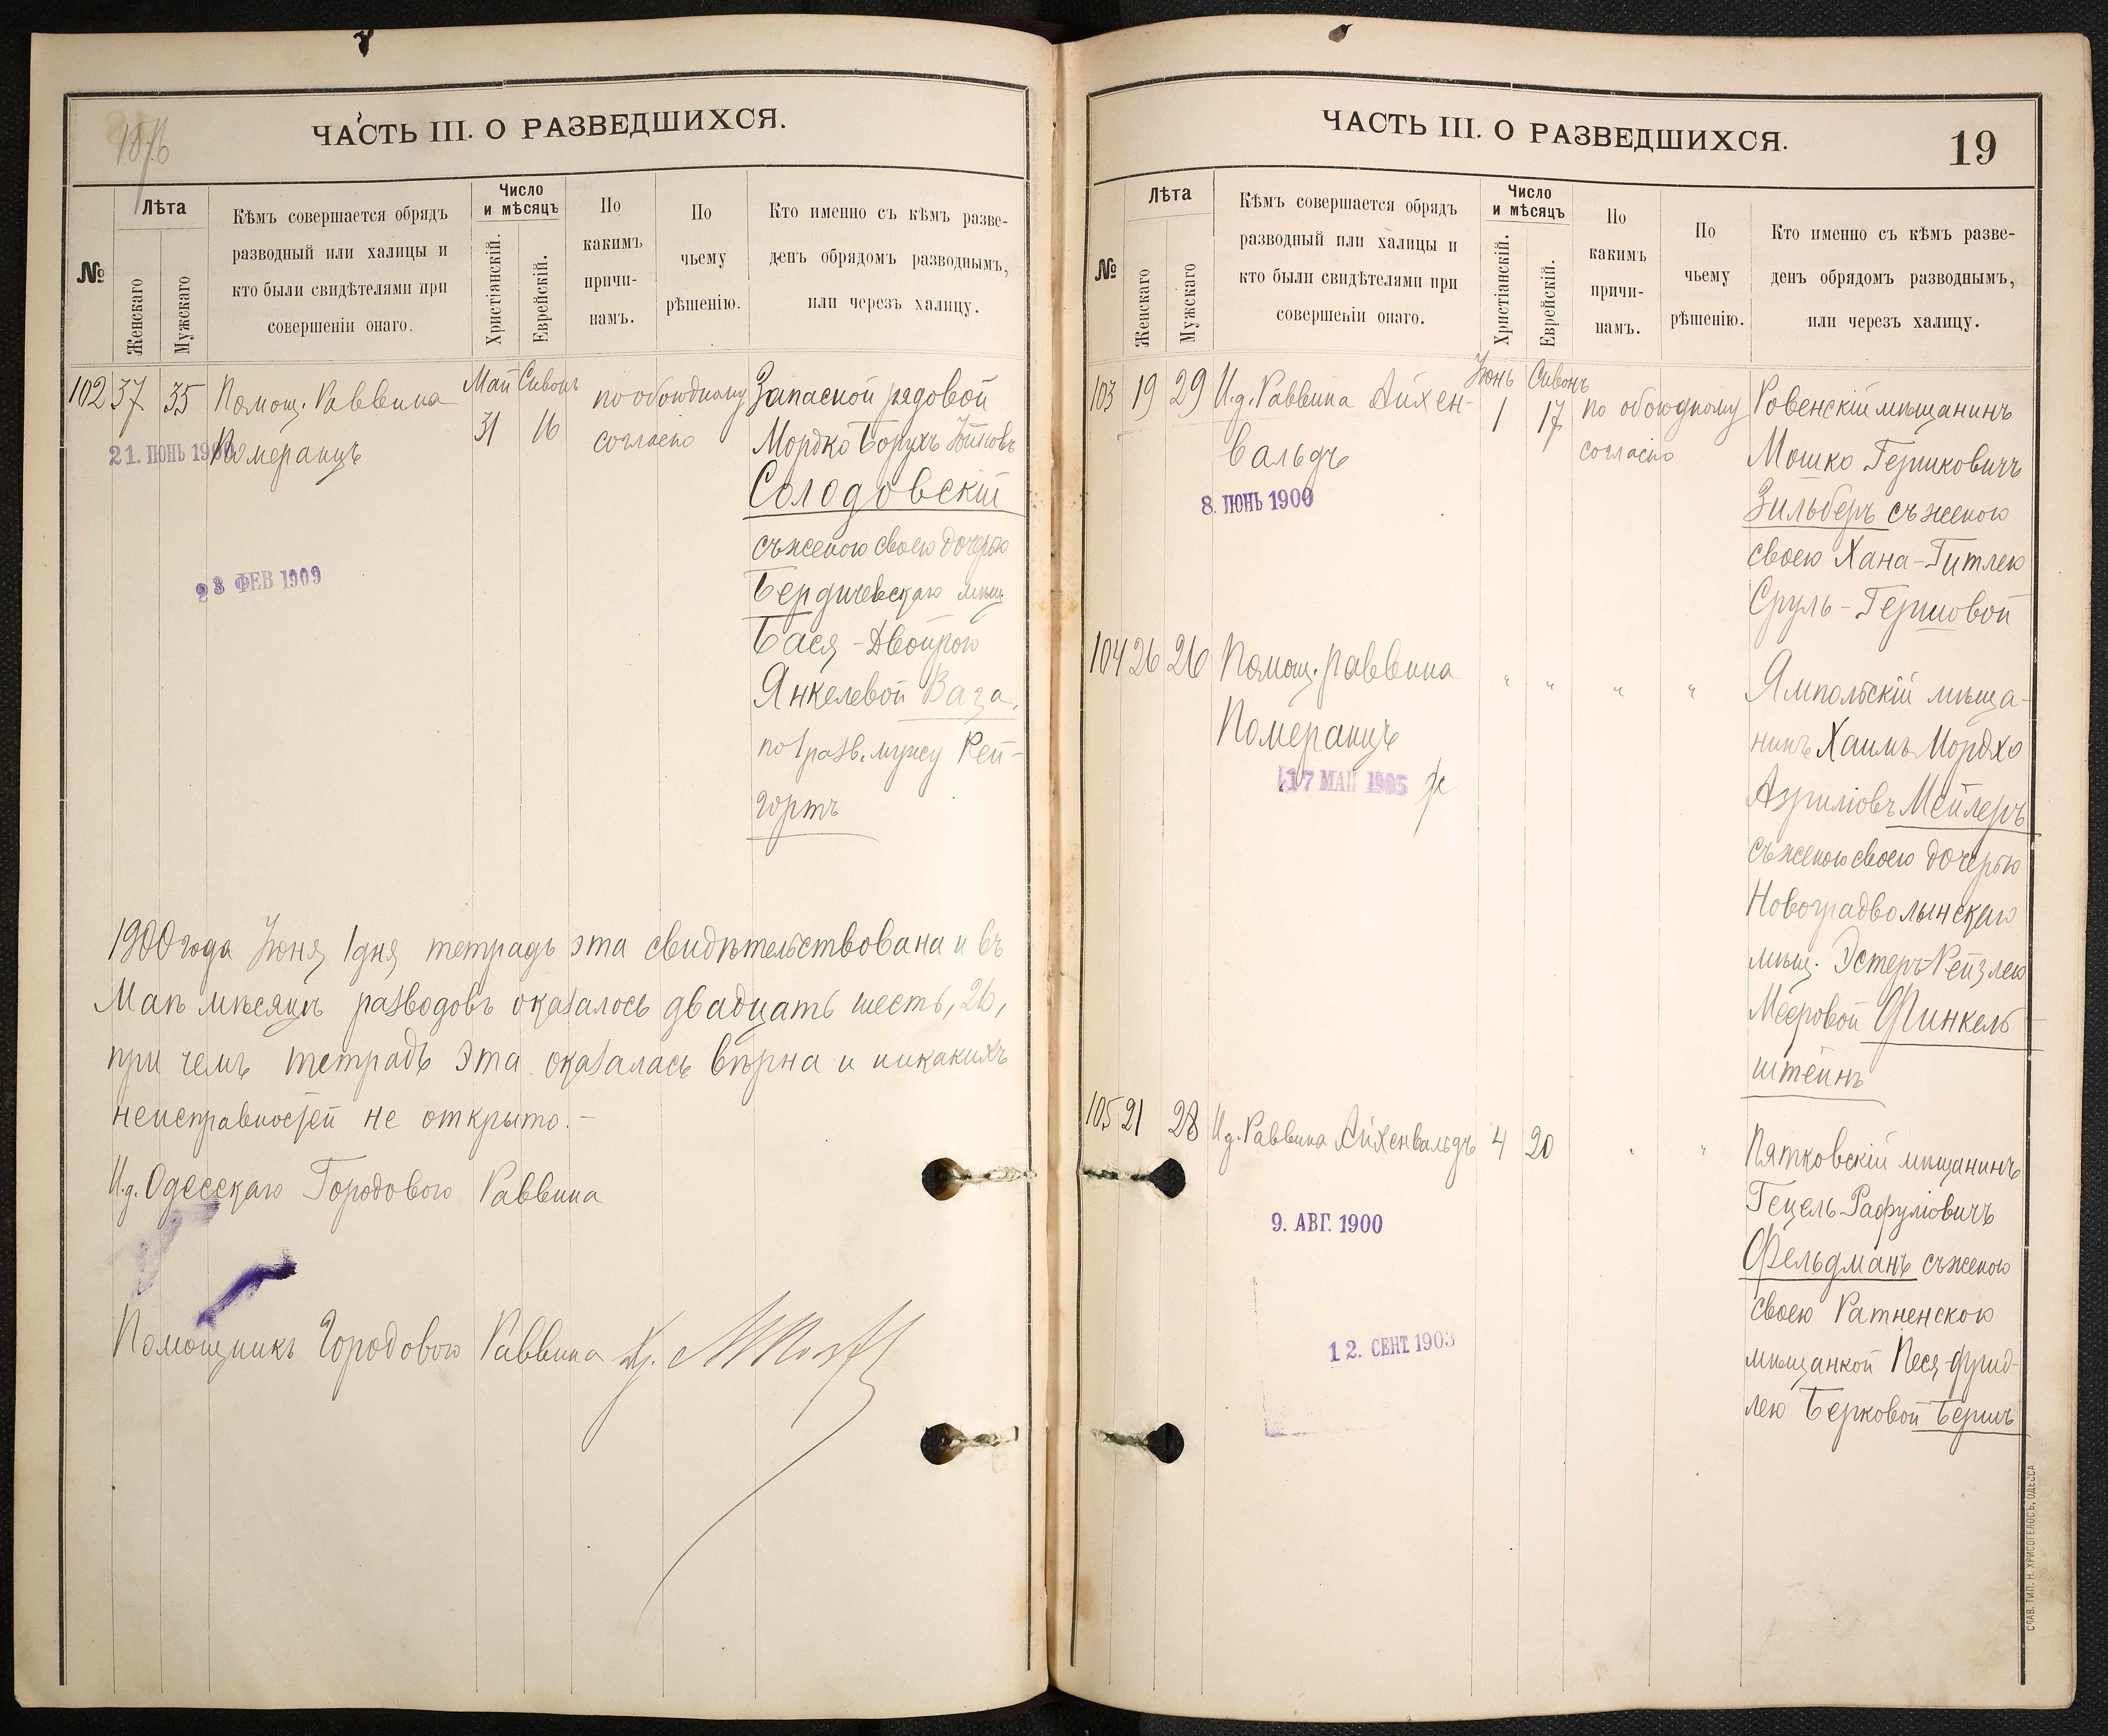 1876
ЧАСТЬ III. О РАЗВЕДШИХСЯ.
№
Лѣта
Женскаго
Мужскаго
Кѣмъ совершается обрядъ
разводный или халицы и
кто были свидѣтелями при
совершеніи онаго.
Число
и мѣсяцъ
Христіанскій.
Еврейскій.
По
какимъ
причи-
намъ.
По
чьему
рѣшенію.
Кто именно съ кѣмъ разве-
денъ обрядомъ разводнымъ,
или черезъ халицу.
102 37 35 Помощ. Раввина
Померанцъ
21. ІЮНЬ 1900
23 ФЕВ 1909
Май Сивонъ
31 16
по обоюдному
согласію
Запасной рядовой
Мордко Борухъ
Солодовскій
съ женою своею дочерью
Бердичевскаго мѣщ
Бася-Двойрою
Янкелевой Ваза,
по 1 разв. мужу Рей-
гортъ
1900 года Іюня 1 дня тетрадь эта свидѣтельствована и въ
Маѣ мѣсяцѣ разводовъ оказалось двадцать шесть, 26,
при чемъ тетрадь эта оказалась вѣрна и никакихъ
неисправностей не открыто.-
И.д. Одесскаго Городового Раввина
Помощникъ Городового Раввина
ЧАСТЬ III. О РАЗВЕДШИХСЯ.
19
№
Лѣта
Женскаго
Мужскаго
Кѣмъ совершается обрядъ
разводный или халицы и
кто были свидѣтелями при
совершеніи онаго.
Число
и мѣсяцъ
Христіанскій.
Еврейскій.
По
какимъ
причи-
намъ.
По
чьему
рѣшенію.
Кто именно съ кѣмъ разве-
денъ обрядомъ разводнымъ,
или черезъ халицу.
103 19 29 И.д. Раввина Айхен-
вальдъ
8. ІЮНЬ 1900
Іюнь Сивонъ
1 17
по обоюдному
согласію
Ровенскій мѣщанинъ
Мошко Гершковичъ
Зильберъ съ женою
своею Хана-Гитлею
Сруль-Гершовой
104 26 26 Помощ. раввина
Померанцъ
17 МАЙ 1905
" " " "
Ямпольскій мѣща-
нинъ Хаимъ Мордхо
Азриліовъ Мейлеръ
съ женою своею дочерью
Новоградволынскаго
мѣщ. Эстеръ-Рейзлею
Мееровой Финкель-
штейнъ
105 21 28 И.д. Раввина Айхенвальдъ 4 20 " "
9. АВГ. 1900
12. СЕНТ. 1903
Пятковскій мѣщанинъ
Гецель Рафуліовичъ
Фельдманъ съ женою
своею Ратненскою
мѣщанкой Песя-Фрид-
лею Берковой Бершъ
СЛАВ. ТИП. Н. ХРИСОГЕЛОСЪ, ОДЕССА